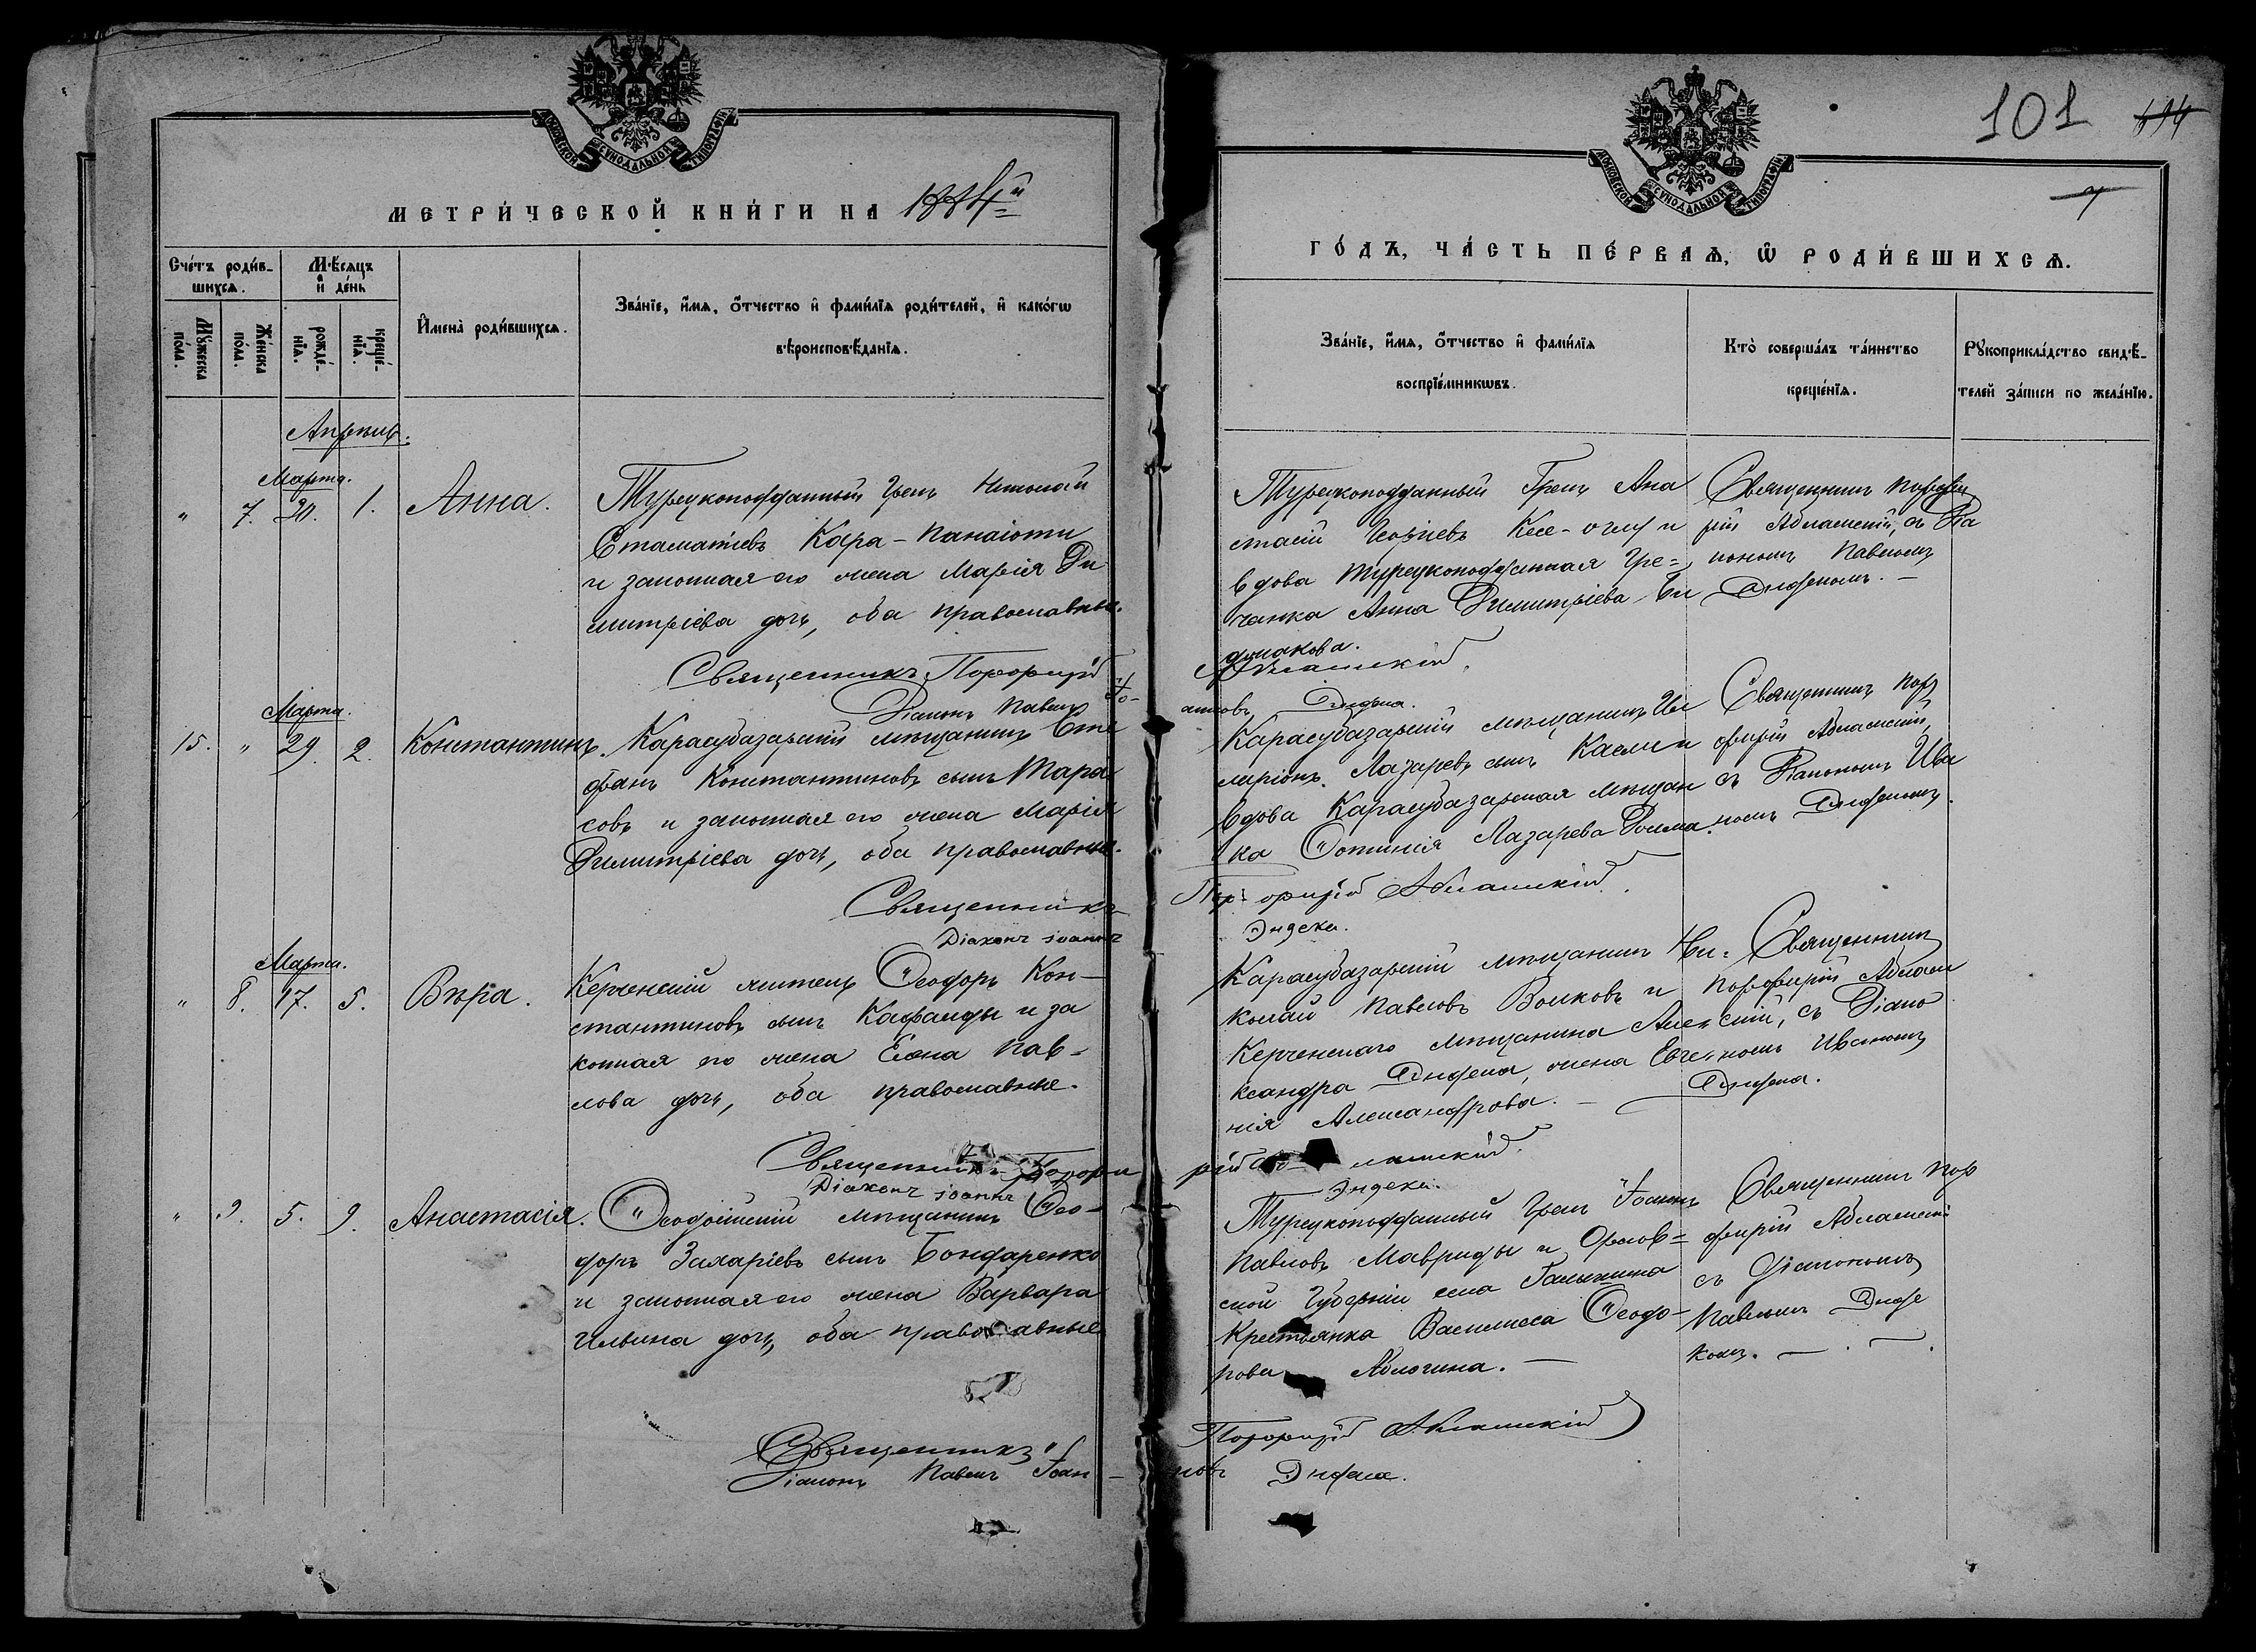 МОСКОВСКОЙ СѴНОДАЛЬНОЙ ТИПОГРАФІИ
МЕТРИ́ЧЕСКОЙ КНИ́ГИ НА 1884й
Сче́тъ роди́в-
шихсѧ.
Мѣ́сѧцъ
и҆ де́нь
Мꙋ́жеска
по́ла.
Же́нска
по́ла.
рожде́-
нїѧ.
креще́-
нїѧ.
И҆мена̀ роди́вшихсѧ.
Зва́нїе, и҆́мѧ, ѻ҆́тчество и҆ фами́лїѧ роди́телей, и҆ како́гѡ
вѣроисповѣ́данїѧ.
Апрѣль.
Марта.
" 7. 30. 1. Анна.
Турецкоподданный Грекъ Николай
Стаматіевъ Кара-Панаіоти
и законная его жена Марія Ди
митріева дочь, оба православные.
Священникъ Порфирій
Діаконъ Павелъ Іо-
Марта.
15. " 29. 2. Константинъ.
Карасубазарскій мѣщанинъ Сте
фанъ Константиновъ сынъ Тара
совъ и законная его жена Марія
Димитріева дочь, оба православные.
Священникъ
Діаконъ Іоаннъ
Марта.
" 8. 17. 5. Вѣра.
Керченскій житель Ѳеодоръ Кон-
стантиновъ сынъ и за
конная его жена Елена Пав-
лова дочь, оба православные.
Священникъ Порфи
Діаконъ Іоаннъ
" 9. 5. 9. Анастасія.
Ѳеодосійскій мѣщанинъ Ѳео-
доръ Захаріевъ сынъ Бондаренко
и законная его жена Варвара
Ильина дочь, оба православные
Священникъ
Діаконъ Павелъ Іоан-
101
7
МОСКОВСКОЙ СѴНОДАЛЬНОЙ ТИПОГРАФІИ
ГО́ДЪ, ЧА́СТЬ ПЕ́РВАѦ, Ѽ РОДИ́ВШИХСѦ.
Зва́нїе, и҆́мѧ, ѻ҆́тчество и҆ фами́лїѧ
воспрїе́мникѡвъ.
Кто̀ соверша́лъ та́инство
креще́нїѧ.
Рꙋкоприкла́дство свидѣ́-
телей за́писи по жела́нїю.
Турецкоподданный Грекъ Ана
стасій Георгіевъ Кесе-оглу и
вдова турецкоподданная Гре-
чанка Анна Димитріева
Священникъ Порфи
рій Аблашскій, съ Діа
кономъ Павломъ
Диѳекомъ.
Аблашскій.
анновъ Диѳека.
Карасубазарскій мѣщанинъ Ил
ларіонъ Лазаревъ сынъ и
вдова Карасубазарская мѣщан
ка Ѳотинія Лазарева
Священникъ Пор
фирій Аблашскій,
съ Діакономъ Ива
номъ Диѳекомъ.
Порфирій Аблашскій.
Эндека.
Карасубазарскій мѣщанинъ Ни-
колай Павловъ Волковъ и
Керченскаго мѣщанина Але-
ксандра Диѳека, жена Евге-
нія Александрова.
Священникъ
Порфирій Аблаш
скій, съ Діако
номъ Иваномъ
Диѳека.
рій Аблашскій.
Эндека.
Турецкоподданный Грекъ Іоаннъ
Павловъ Мавриды и Орлов-
ской Губерніи села
Крестьянка Василисса Ѳеодо-
рова Аблогина.
Священникъ Пор
фирій Аблашскій
съ Діакономъ
Павломъ Диѳе
комъ.
Порфирій Аблашскій
новъ Диѳека.